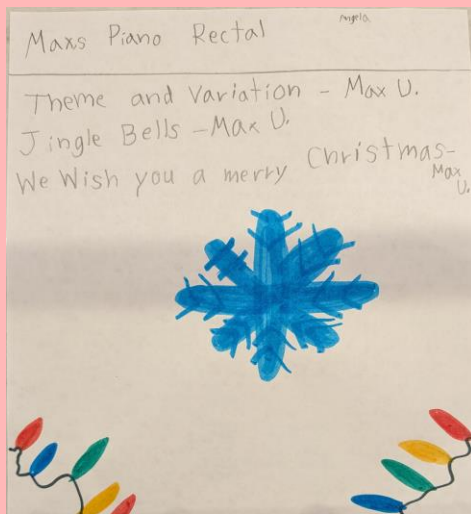 Maxs Piano Rectal
Angela
Theme and Variation - Max U.
Jingle Bells - Max U.
We Wish you a merry Christmas-
Max
U.